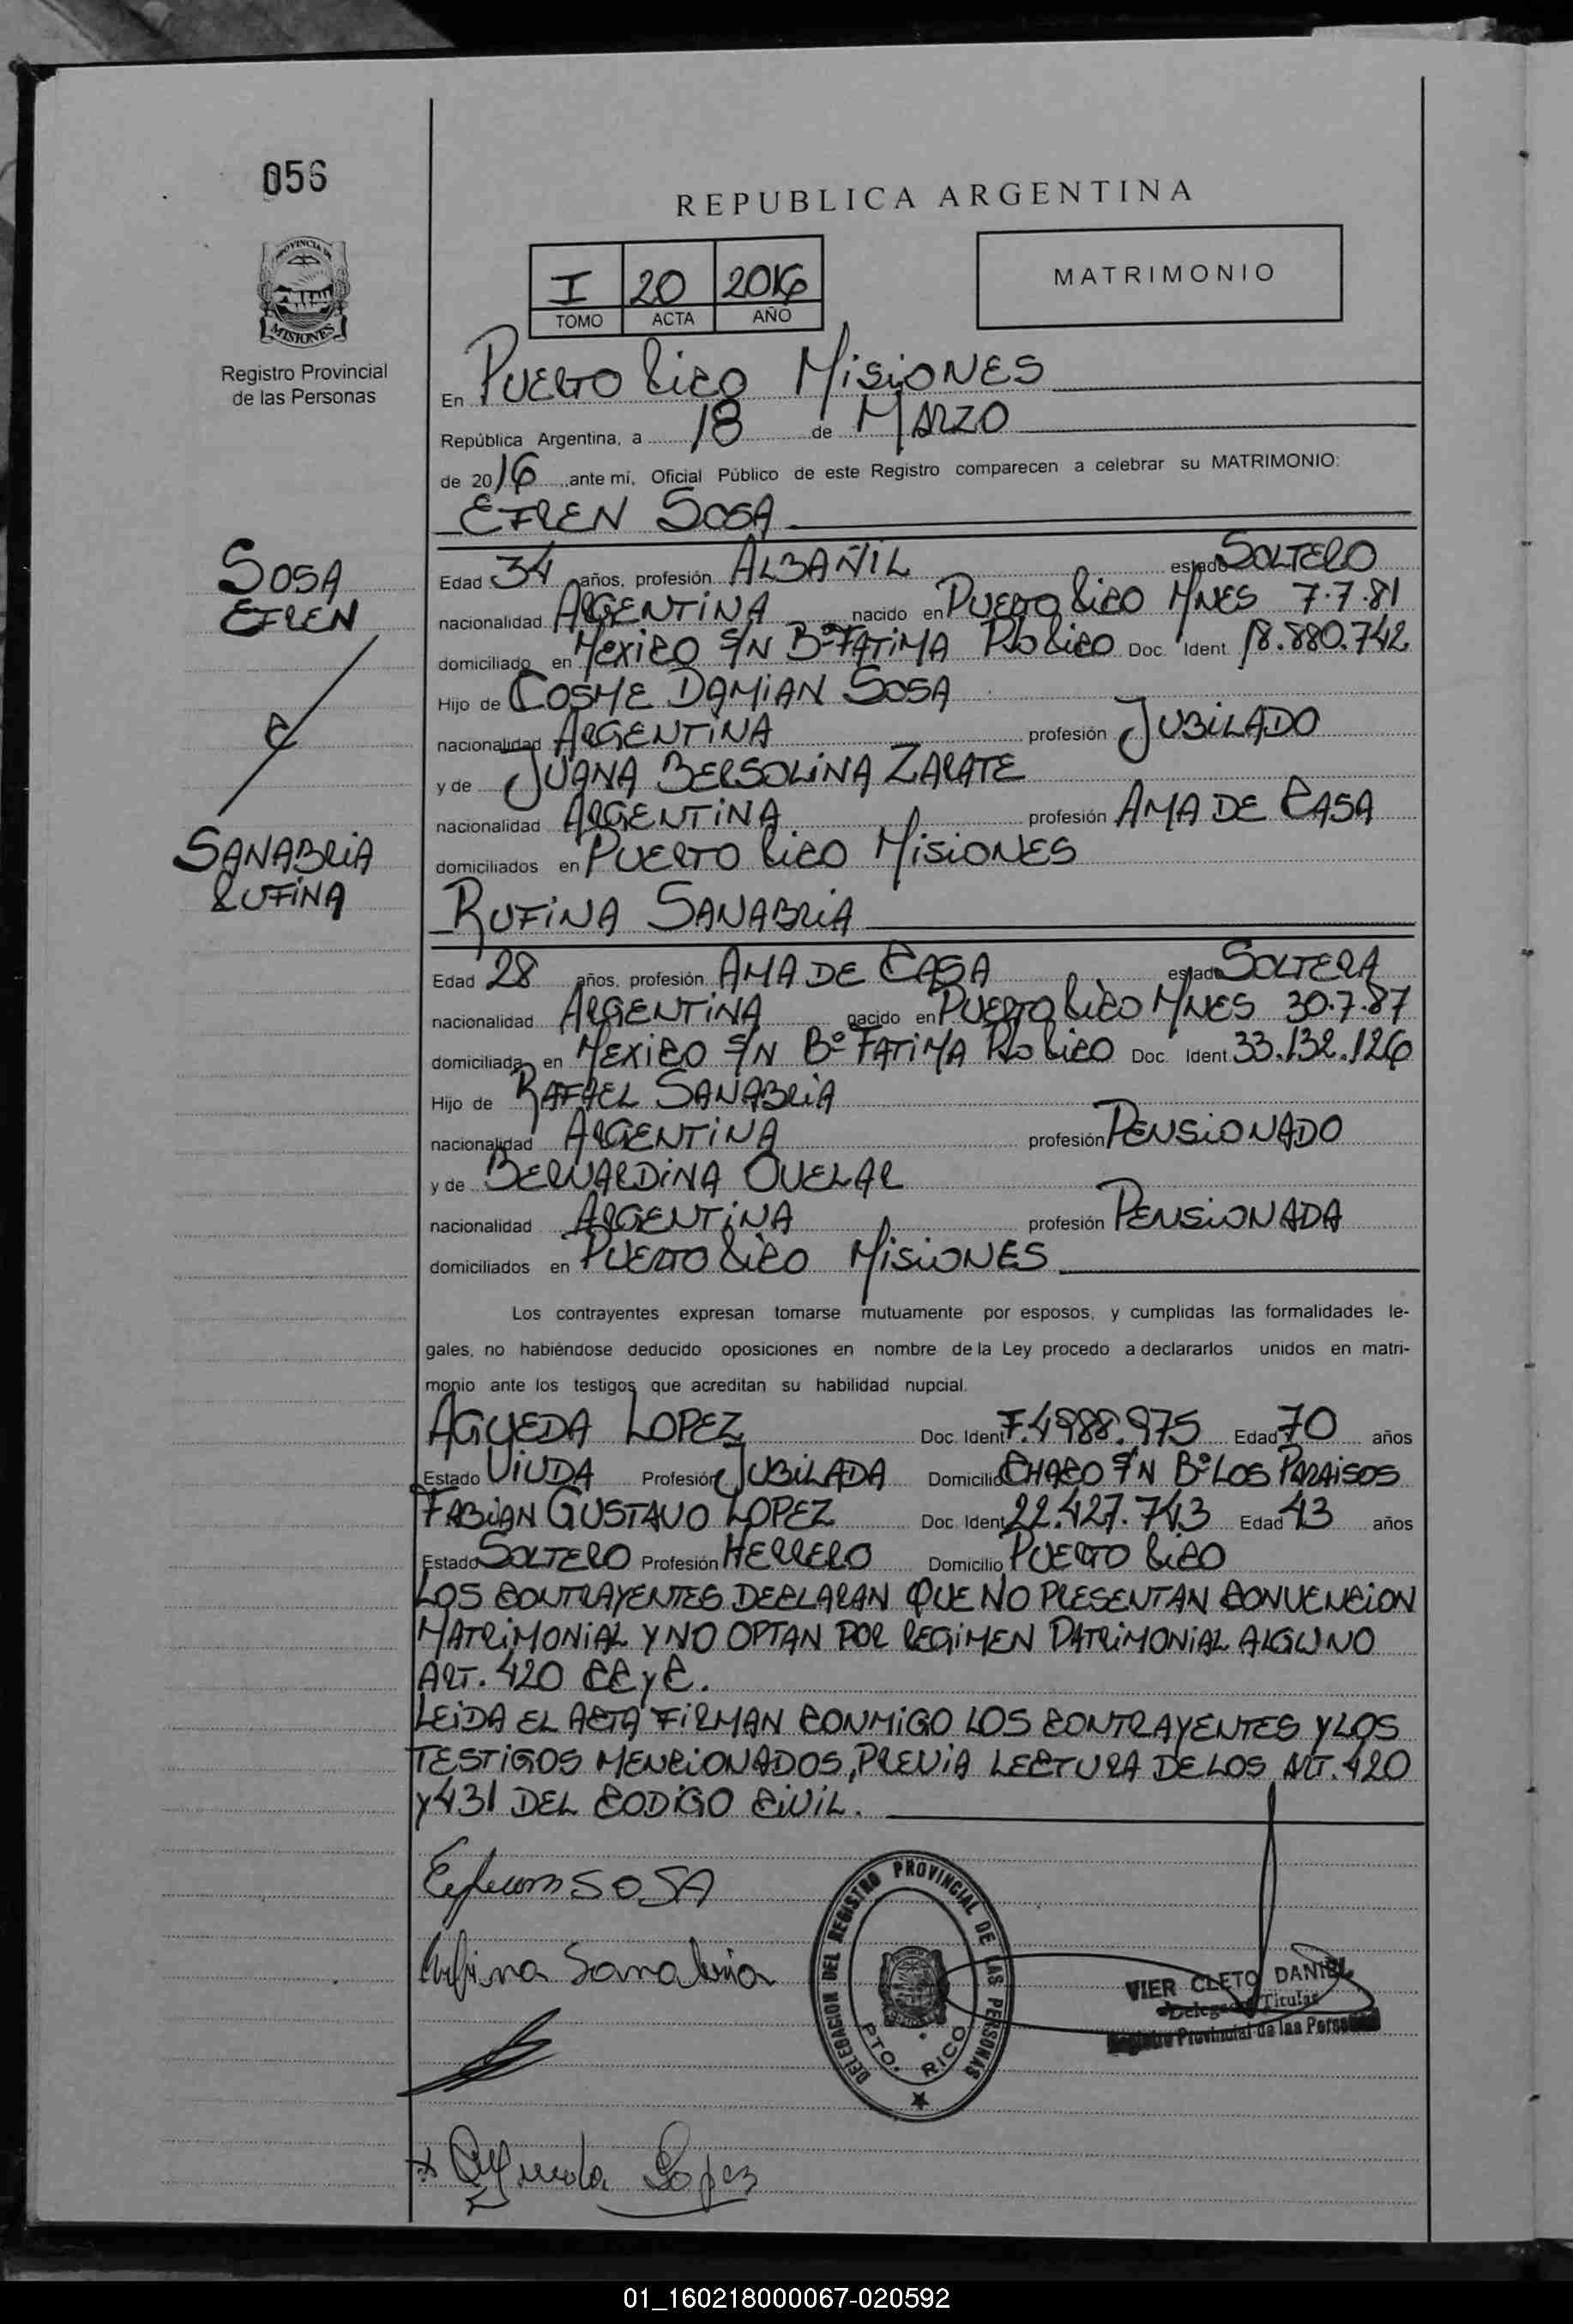 056
REPUBLICA ARGENTINA
PROVINCIA DE
MISIONES
Registro Provincial
de las Personas
I 20 2016
TOMO ACTA AÑO
MATRIMONIO
En PUERTO RICO MISIONES
República Argentina, a 18 de MARZO
de 2016 ante mí, Oficial Público de este Registro comparecen a celebrar su MATRIMONIO:
EFREN SOSA
SOSA
EFREN
C
SANABRIA
RUFINA
Edad 34 años, profesión ALBAÑIL estado SOLTERO
nacionalidad ARGENTINA nacido en PUERTO RICO MNES 7.7.81
domiciliado en MEXICO S/N Bº FATIMA PTO RICO Doc. Ident. 18.880.742
Hijo de COSME DAMIAN SOSA
nacionalidad ARGENTINA profesión JUBILADO
y de JUANA BERSOLINA ZARATE
nacionalidad ARGENTINA profesión AMA DE CASA
domiciliados en PUERTO RICO MISIONES
RUFINA SANABRIA
Edad 28 años, profesión AMA DE CASA estado SOLTERA
nacionalidad ARGENTINA nacido en PUERTO RICO MNES 30.7.87
domiciliada en MEXICO S/N Bº FATIMA PTO RICO Doc. Ident. 33.132.126
Hijo de RAFAEL SANABRIA
nacionalidad ARGENTINA profesión PENSIONADO
y de BERNARDINA OVELAR
nacionalidad ARGENTINA profesión PENSIONADA
domiciliados en PUERTO RICO MISIONES
Los contrayentes expresan tomarse mutuamente por esposos, y cumplidas las formalidades le-
gales, no habiéndose deducido oposiciones en nombre de la Ley procedo a declararlos unidos en matri-
monio ante los testigos que acreditan su habilidad nupcial.
AGUEDA LOPEZ Doc. Ident F.4988.975 Edad 70 años
Estado VIUDA Profesión JUBILADA Domicilio CHACO S/N Bº LOS PARAISOS
FABIAN GUSTAVO LOPEZ Doc. Ident 22.427.743 Edad 43 años
Estado SOLTERO Profesión HERRERO Domicilio PUERTO RICO
LOS CONTRAYENTES DECLARAN QUE NO PRESENTAN CONVENCION
MATRIMONIAL Y NO OPTAN POR REGIMEN PATRIMONIAL ALGUNO
ART. 420 CC y C.
LEIDA EL ACTA FIRMAN CONMIGO LOS CONTRAYENTES Y LOS
TESTIGOS MENCIONADOS, PREVIA LECTURA DE LOS ART. 420
Y 431 DEL CODIGO CIVIL.
SOSA
Rufina Sanabria
DELEGACION DEL REGISTRO PROVINCIAL DE LAS PERSONAS
PTO. RICO
VIER CLETO DANIEL
Delegado Titular
Provincial de las Personas
Lopez
01_160218000067-020592